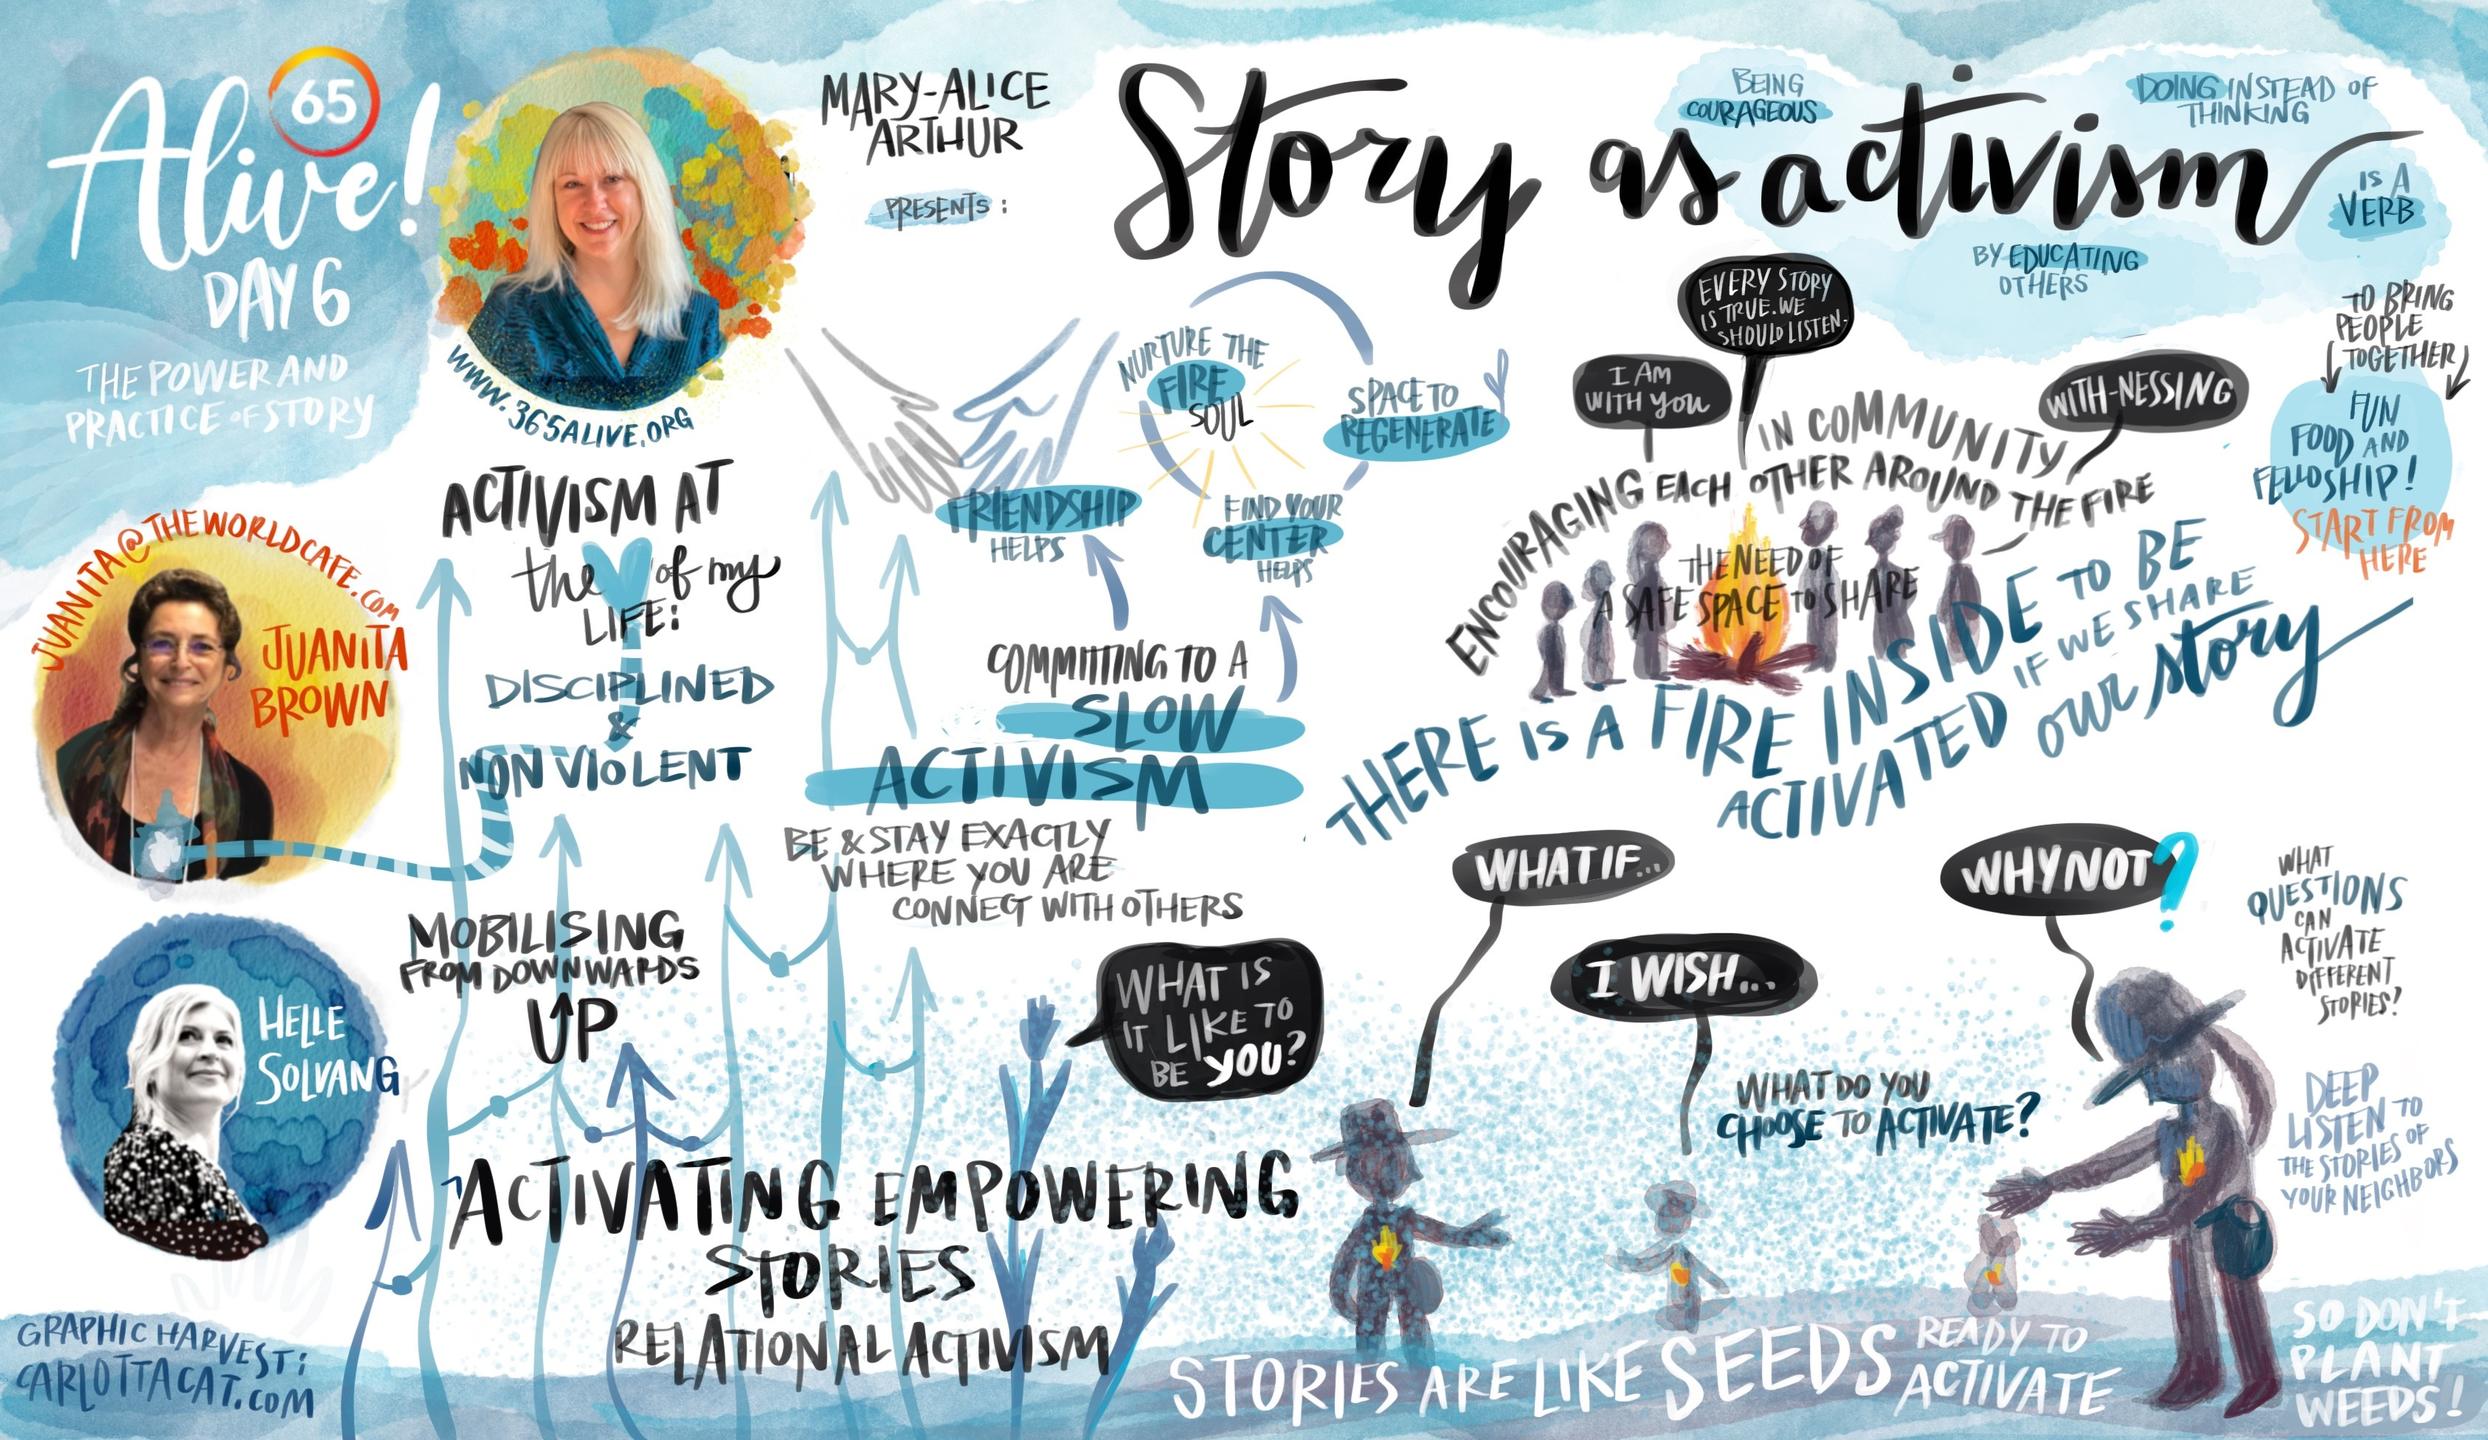 65
Alive!
DAY 6
THE POWER AND
PRACTICE OF STORY
WWW.365ALIVE.ORG
MARY-ALICE
ARTHUR
PRESENTS:
Story as activism
BEING
COURAGEOUS
DOING INSTEAD OF
THINKING
IS A
VERB
BY EDUCATING
OTHERS
TO BRING
PEOPLE
TOGETHER
FUN
FOOD AND
FELLOSHIP!
START FROM
HERE
JUANITA@THEWORLDCAFE.COM
JUANITA
BROWN
HELLE
SOLVANG
GRAPHIC HARVEST:
CARLOTTACAT.COM
ACTIVISM AT
the of my
LIFE:
DISCIPLINED
&
NON VIOLENT
MOBILISING
FROM DOWNWARDS
UP
FRIENDSHIP
HELPS
NURTURE THE
FIRE
SOUL
SPACE TO
REGENERATE
FIND YOUR
CENTER
HELPS
COMMITTING TO A
SLOW
ACTIVISM
BE & STAY EXACTLY
WHERE YOU ARE
CONNECT WITH OTHERS
ACTIVATING EMPOWERING
STORIES
RELATIONAL ACTIVISM
WHAT IS
IT LIKE TO
BE YOU?
EVERY STORY
IS TRUE. WE
SHOULD LISTEN.
I AM
WITH YOU
WITH-NESSING
IN COMMUNITY
ENCOURAGING EACH OTHER AROUND THE FIRE
THE NEED OF
A SAFE SPACE TO SHARE
THERE IS A FIRE INSIDE TO BE
ACTIVATED IF WE SHARE
our story
WHAT IF...
I WISH...
WHY NOT?
WHAT
QUESTIONS
CAN
ACTIVATE
DIFFERENT
STORIES?
WHAT DO YOU
CHOOSE TO ACTIVATE?
DEEP
LISTEN TO
THE STORIES OF
YOUR NEIGHBORS
STORIES ARE LIKE SEEDS READY TO
ACTIVATE
SO DON'T
PLANT
WEEDS!